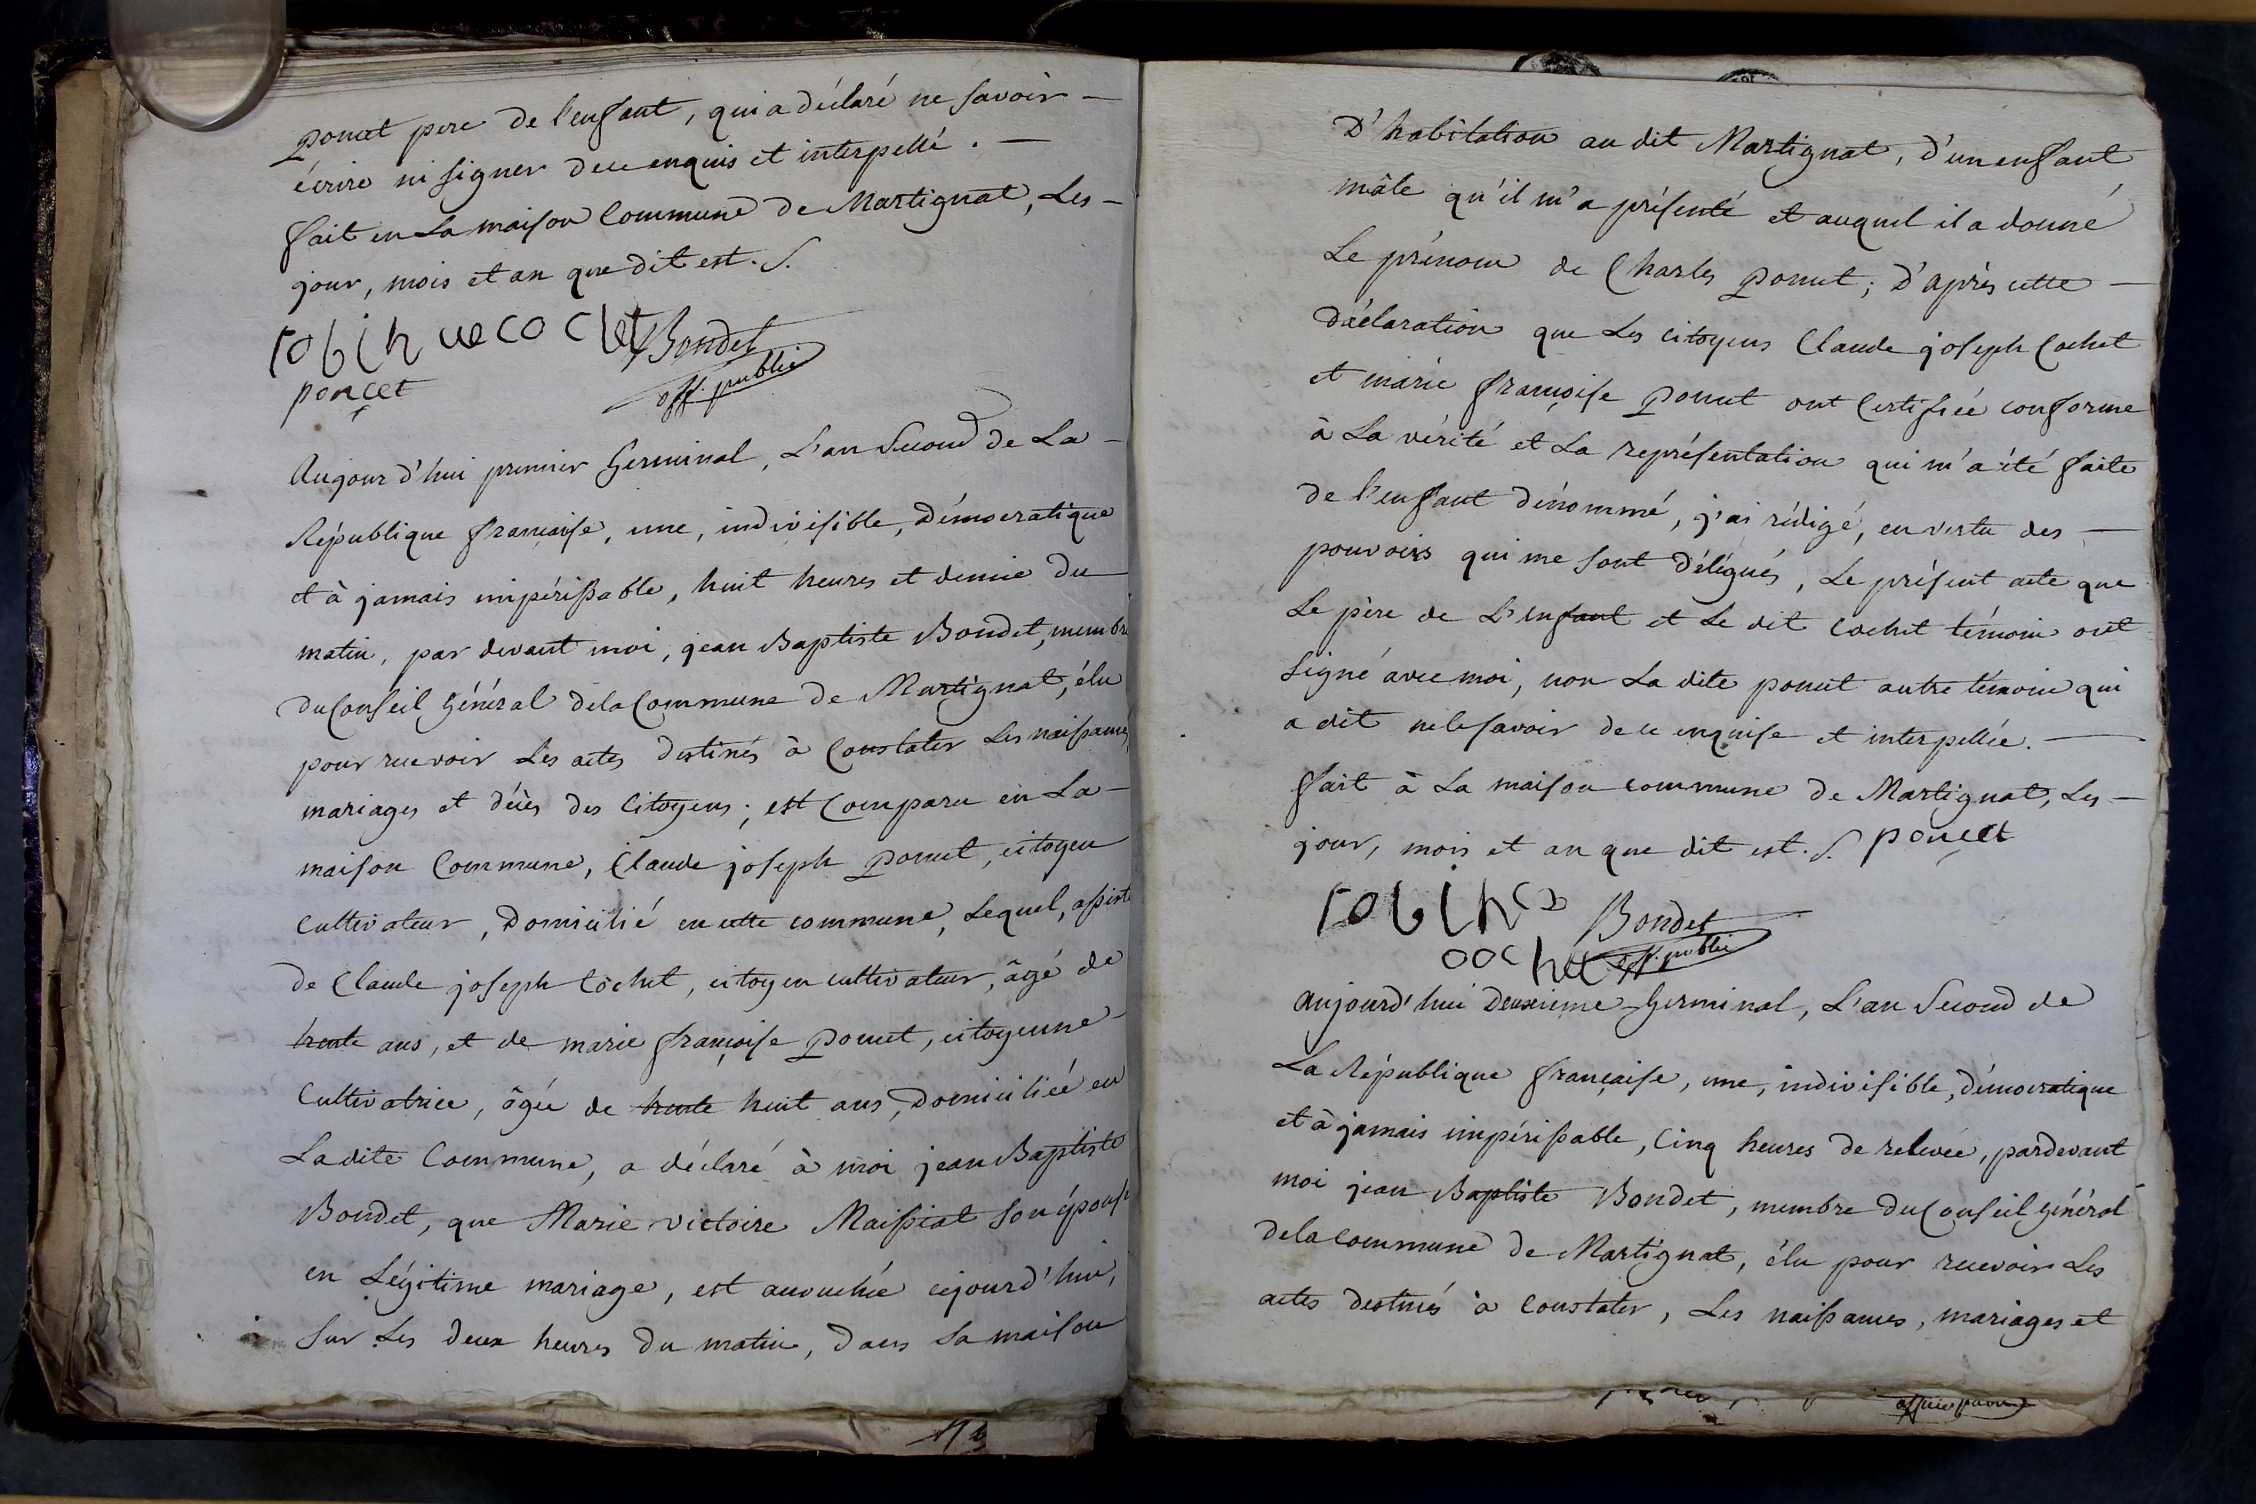 poncet pere de l'enfant, qui a déclaré ne savoir –
écrire ni signer de ce enquis et interpellé. –
fait en La maison Commune de Martignat, Les –
jour, mois et an que dit est. S.
Bondet
poncet
off. public
Aujourd'hui premier Germinal, L'an Second de La –
République française, une, indivisible, démocratique
et à jamais impérissable, huit heures et demie du
matin, par devant moi, jean Baptiste Bondet, membre
du Conseil Général de la Commune de Martignat, élu
pour recevoir Les actes destinés à Constater Les naissances,
mariages et décès des Citoyens; est Comparu en La –
maison Commune, Claude joseph poncet, citoyen
Cultivateur, domicilié en cette commune, Lequel, assisté
de Claude joseph Cochet, citoyen cultivateur, âgé de
trente ans, et de marie françoise poncet, citoyenne
Cultivatrice, âgée de trente huit ans, domiciliée en
La dite Commune, a déclaré à moi jean Baptiste
Bondet, que Marie victoire Maissiat son épouse
en Légitime mariage, est accouchée cejourd'hui,
sur Les deux heures du matin, dans Sa maison
D'habitation au dit Martignat, d'un enfant
mâle qu'il m'a présenté et auquel il a donné
Le prénom de Charles poncet; D'après cette –
déclaration que Les citoyens Claude joseph Cochet
et marie françoise poncet ont Certifiée conforme
à La vérité et La représentation qui m'a été faite
de l'enfant dénommé, j'ai rédigé, en vertu des –
pouvoirs qui me sont délégués, Le présent acte que
Le père de L'enfant et Le dit Cochet témoin ont
signé avec moi, non La dite poncet autre témoin qui
a dit ne le savoir de ce enquise et interpellée. –
fait à La maison commune de Martignat, Les –
jour, mois et an que dit est. S. poncet
Bondet
off. public
aujourd'hui deuxieme Germinal, L'an Second de
La République française, une, indivisible, démocratique
et à jamais impérissable, Cinq heures de relevée, pardevant
moi jean Baptiste Bondet, membre du Conseil Général
de la commune de Martignat, élu pour recevoir Les
actes destinés à Constater, Les naissances, mariages et